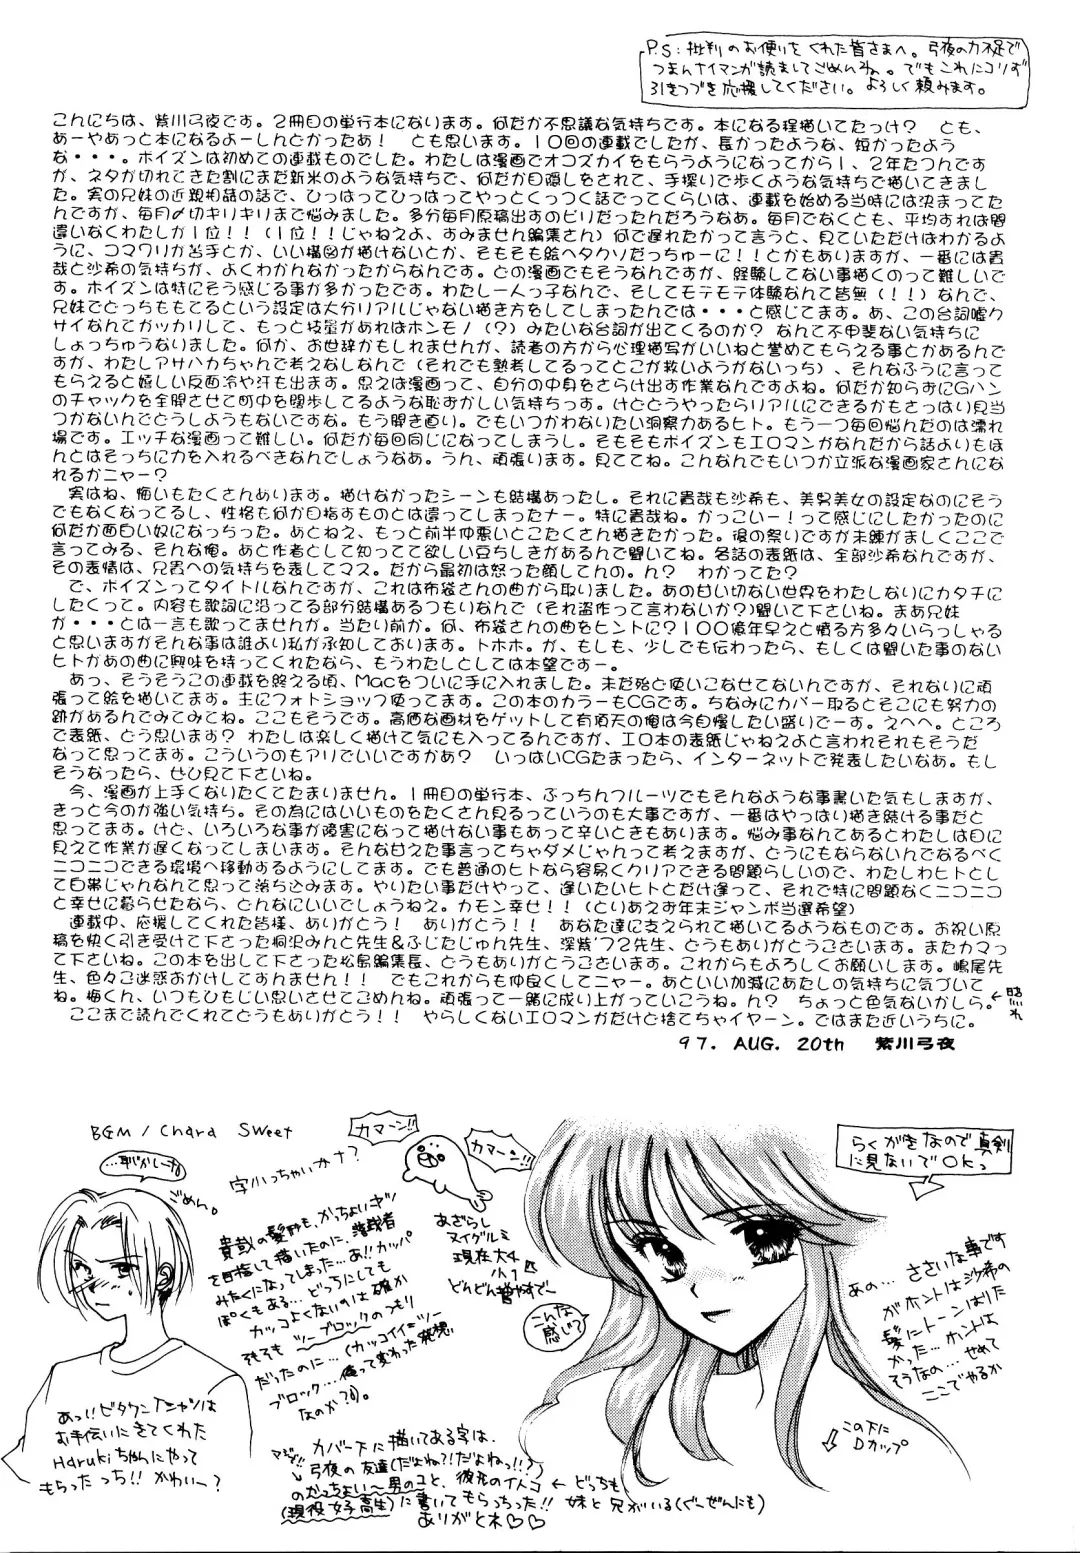 P.S：批判のお便りをくれた皆さまへ。弓夜の力不足で
つまんナイマンガ読ましてごめんね。でもこれにコリず
引きつづき応援してください。よろしく頼みます。
こんにちは、紫川弓夜です。2冊目の単行本になります。何だか不思議な気持ちです。本になる程描いてたっけ？　とも、
あーやあっと本になるよーしんどかったあ！　とも思います。10回の連載でしたが、長かったような、短かったよう
な・・・。ポイズンは初めての連載ものでした。わたしは漫画でオコズカイをもらうようになってから1、2年たつんです
が、ネタが切れてきた割にまだ新米のような気持ちで、何だか目隠しをされて、手探りで歩くような気持ちで描いてきまし
た。実の兄妹の近親相姦の話で、ひっぱってひっぱってやっとくっつく話でってくらいは、連載を始める当時には決まってた
んですが、毎月〆切キリキリまで悩みました。多分毎月原稿出すのビリだったんだろうなあ。毎月でなくとも、平均すれば間
違いなくわたしが1位！！（1位！！じゃねえよ、すみません編集さん）何で遅れたかって言うと、見ていただけばわかるよ
うに、コマワリが苦手とか、いい構図が描けないとか、そもそも絵ヘタクソだっちゅーに！！とかもありますが、一番には貴
哉と沙希の気持ちが、よくわかんなかったからなんです。どの漫画でもそうなんですが、経験してない事描くのって難しいで
す。ポイズンは特にそう感じる事が多かったです。わたし一人っ子なんで、そしてモテモテ体験なんて皆無（！！）なんで、
兄妹でどっちももてるという設定は大分リアルじゃない描き方をしてしまったんでは・・・と感じてます。あ、この台詞嘘ク
サイなんてガッカリして、もっと技量があればホンモノ（？）みたいな台詞が出てくるのか？　なんて不甲斐ない気持ちに
しょっちゅうなりました。何か、お世辞かもしれませんが、読者の方から心理描写がいいねと誉めてもらえる事とかあるんで
すが、わたしアサハカちゃんで考えなしなんで（それでも熟考してるってとこが救いようがないっち）、そんなふうに言って
もらえると嬉しい反面冷や汗も出ます。思えば漫画って、自分の中身をさらけ出す作業なんですよね。何だか知らずにGパン
のチャックを全開させて町中を闊歩してるような恥ずかしい気持ちっす。けどどうやったらリアルにできるかもさっぱり見当
つかないんでどうしようもないですな。もう開き直り。でもいつかわないたい洞察力あるヒト。もう一つ毎回悩んだのは濡れ
場です。エッチな漫画って難しい。何だか毎回同じになってしまうし。そもそもポイズンもエロマンガなんだから話よりもほ
んとはそっちに力を入れるべきなんでしょうなあ。うん、頑張ります。見ててね。こんなんでもいつか立派な漫画家さんにな
れるかニャー？
　実はね、悔いもたくさんあります。描けなかったシーンも結構あったし。それに貴哉も沙希も、美男美女の設定なのにそう
でもなくなってるし、性格も何か目指すものとは違ってしまったナー。特に貴哉ね。かっこいー！って感じにしたかったのに
何だか面白い奴になっちった。あとねえ、もっと前半仲悪いとこたくさん描きたかった。後の祭りですが未練がましくここで
言ってみる、そんな俺。あと作者として知ってて欲しい豆ちしきがあるんで聞いてね。各話の表紙は、全部沙希なんですが、
その表情は、兄貴への気持ちを表してマス。だから最初は怒った顔してんの。ん？　わかってた？
　で、ポイズンってタイトルなんですが、これは布袋さんの曲から取りました。あの甘い切ない世界をわたしなりにカタチに
したくって。内容も歌詞に沿ってる部分結構あるつもりなんで（それ盗作って言わないか？）聞いて下さいね。まあ兄妹
が・・・とは一言も歌ってませんが。当たり前か。何、布袋さんの曲をヒントに？100億年早えと憤る方多々いらっしゃる
と思いますがそんな事は誰より私が承知しております。トホホ。が、もしも、少しでも伝わったら、もしくは聞いた事のない
ヒトがあの曲に興味を持ってくれたなら、もうわたしとしては本望ですー。
　あっ、そうそうこの連載を終える頃、Macをついに手に入れました。未だ殆ど使いこなせてないんですが、それなりに頑
張って絵を描いてます。主にフォトショップ使ってます。この本のカラーもCGです。ちなみにカバー取るとそこにも努力の
跡があるんでみてみてね。ここもそうです。高価な画材をゲットして有頂天の俺は今自慢したい盛りでーす。えへへ。ところ
で表紙、どう思います？ わたしは楽しく描けて気にも入ってるんですが、エロ本の表紙じゃねえよと言われそれもそうだ
なって思ってます。こういうのもアリでいいですかあ？　いっぱいCGたまったら、インターネットで発表したいなあ。もし
そうなったら、ぜひ見て下さいね。
　今、漫画が上手くないたくてたまりません。1冊目の単行本、ぶっちんフルーツでもそんなような事書いた気もしますが、
きっと今のが強い気持ち。その為にはいいものをたくさん見るっていうのも大事ですが、一番はやっぱり描き続ける事だと
思ってます。けど、いろいろな事が障害になって描けない事もあって辛いときもあります。悩み事なんてあるとわたしは目に
見えて作業が遅くなってしまいます。そんな甘えた事言ってちゃダメじゃんって考えますが、どうにもならないんでなるべく
ニコニコできる環境へ移動するようにしてます。でも普通のヒトなら容易くクリアできる問題らしいので、わたしわヒトとし
て白帯じゃんなんて思って落ち込みます。やりたい事だけやって、逢いたいヒトとだけ逢って、それで特に問題なくニコニコ
と幸せに暮らせたなら、どんなにいいでしょうねえ。カモン幸せ！！（とりあえず年末ジャンボ当選希望）
　連載中、応援してくれた皆様、ありがとう！　ありがとう！！　あなた達に支えられて描いてるようなものです。お祝い原
稿を快く引き受けて下さった桐沢みんと先生＆ふじたじゅん先生、深紫'72先生、どうもありがとうございます。またカマっ
て下さいね。この本を出して下さった松島編集長、どうもありがとうございます。これからもよろしくお願いします。嶋尾先
生、色々ご迷惑おかけしてすんません！！　でもこれからも仲良くしてニャー。あといい加減にあたしの気持ちに気づいて
ね。梅くん、いつもひもじい思いさせてごめんね。頑張って一緒に成り上がっていこうね。ん？　ちょっと色気ないかしら。←照れ
　ここまで読んでくれてどうもありがとう！！　やらしくないエロマンガだけど捨てちゃイヤーン。ではまた近いうちに。
97. AUG. 20th　紫川弓夜
BGM / Chara Sweet
…恥かしーね
ごめん。
字小っちゃいかナ？
カマーン!!
カマーン!!
あざらし
ヌイグルミ
現在大4
小1匹
どんどん増やすでー
貴哉の髪形も、かっちょいギツ
を目指して描いたのに、落球者
みたくになってしまった…あ!!カッパ
ぽくもある…どっちにしても
カッコよくないのは確か
ツーブロックのつもり
だったのに…（カッコイイ=ツー
ブロック…俺って変わった発想
なのか?6）。
あっ!!ピタウンTシャツは
お手伝いにきてくれた
Harukiちゃんにやって
もらったっち!! かわいー？
こんな
感じで
らくがきなので真剣
に見ないでOkっ
あの… ささいな事です
がホントは沙希の
髪にトーンはりた
かった…ホントは
そうなの…せめて
ここでやるか
この下に
Dカップ
マジ!! カバー下に描いてある字は、
弓夜の友達（だよね?!だよねっ!!?）
のかっちょい〜男のコと、彼氏のイトコ ← どっちも
（現役女子高生）に書いてもらっちった!! 妹と兄がいる（ぐーぜんにも）
ありがとネ♡♡